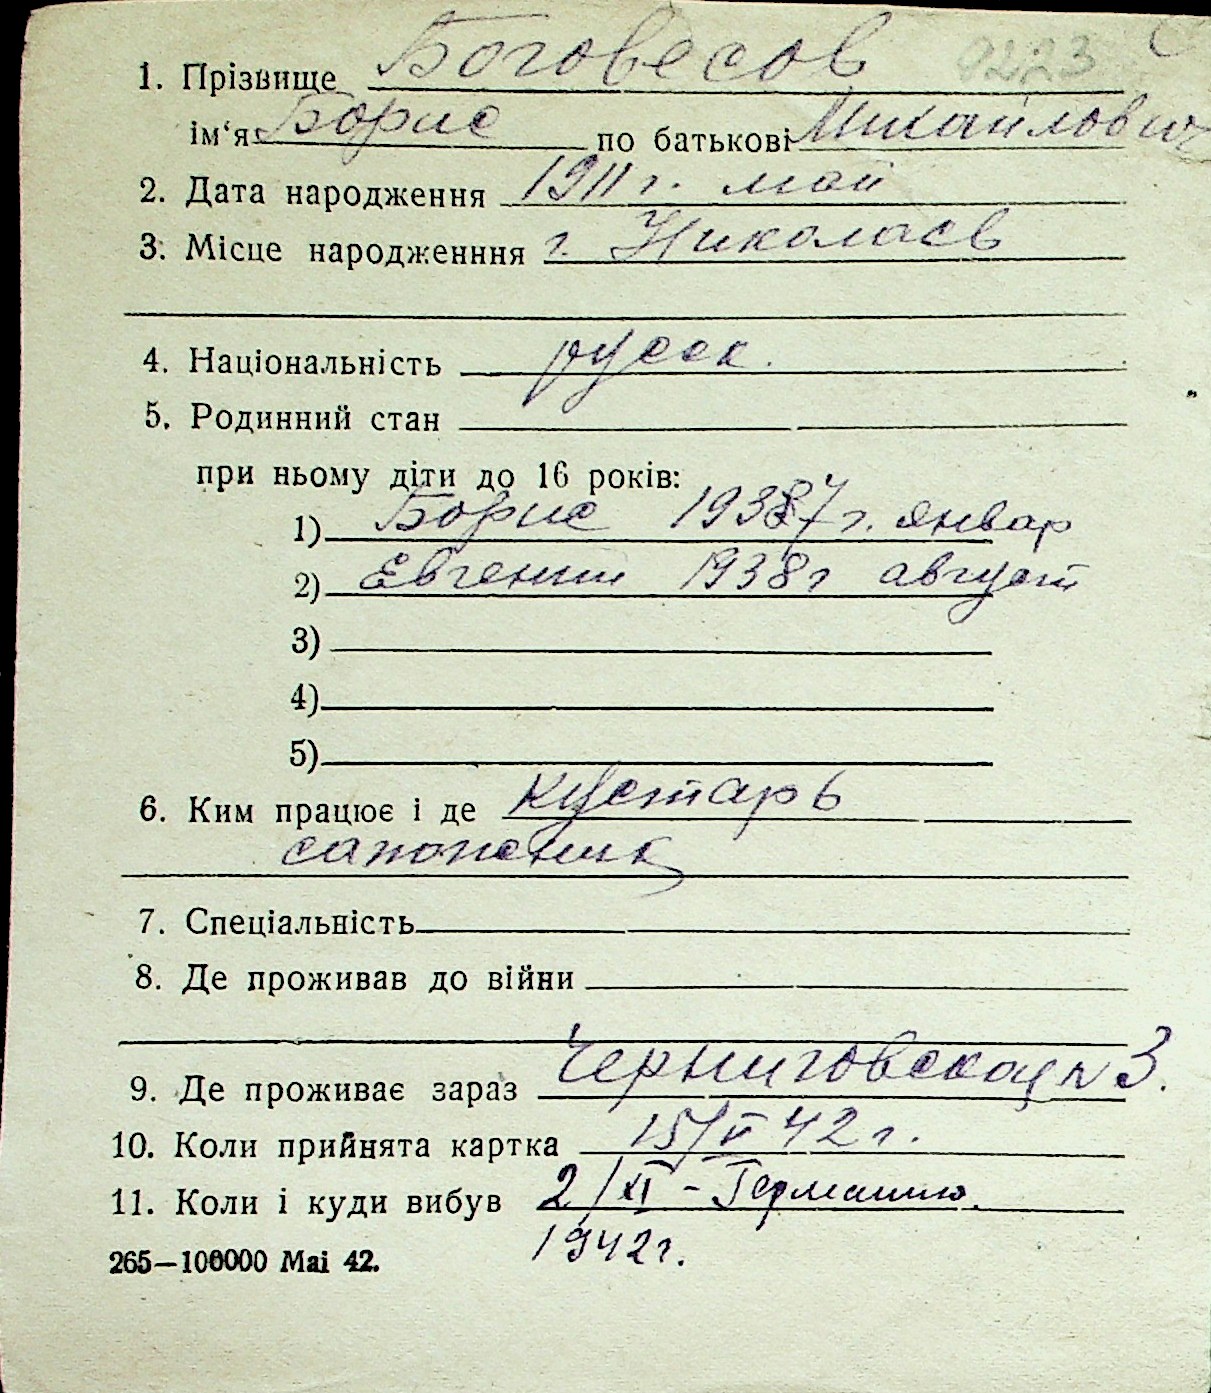 1. Прізвище Боговесов 9223
ім'я Борис по батькові Михайлович
2. Дата народження 1911 г. май
3. Місце народженння г. Николаев
4. Національність русск.
5. Родинний стан
при ньому діти до 16 років:
1) Борис 1937 г. январ
2) Евгений 1938 г август
3)
4)
5)
6. Ким працює і де кустарь
сапожник
7. Спеціальність
8. Де проживав до війни
9. Де проживає зараз Черниговская N 3.
10. Коли прийнята картка 15/V 42 г.
11. Коли і куди вибув 2/XI - Германию.
1942 г.
265—100000 Mai 42.